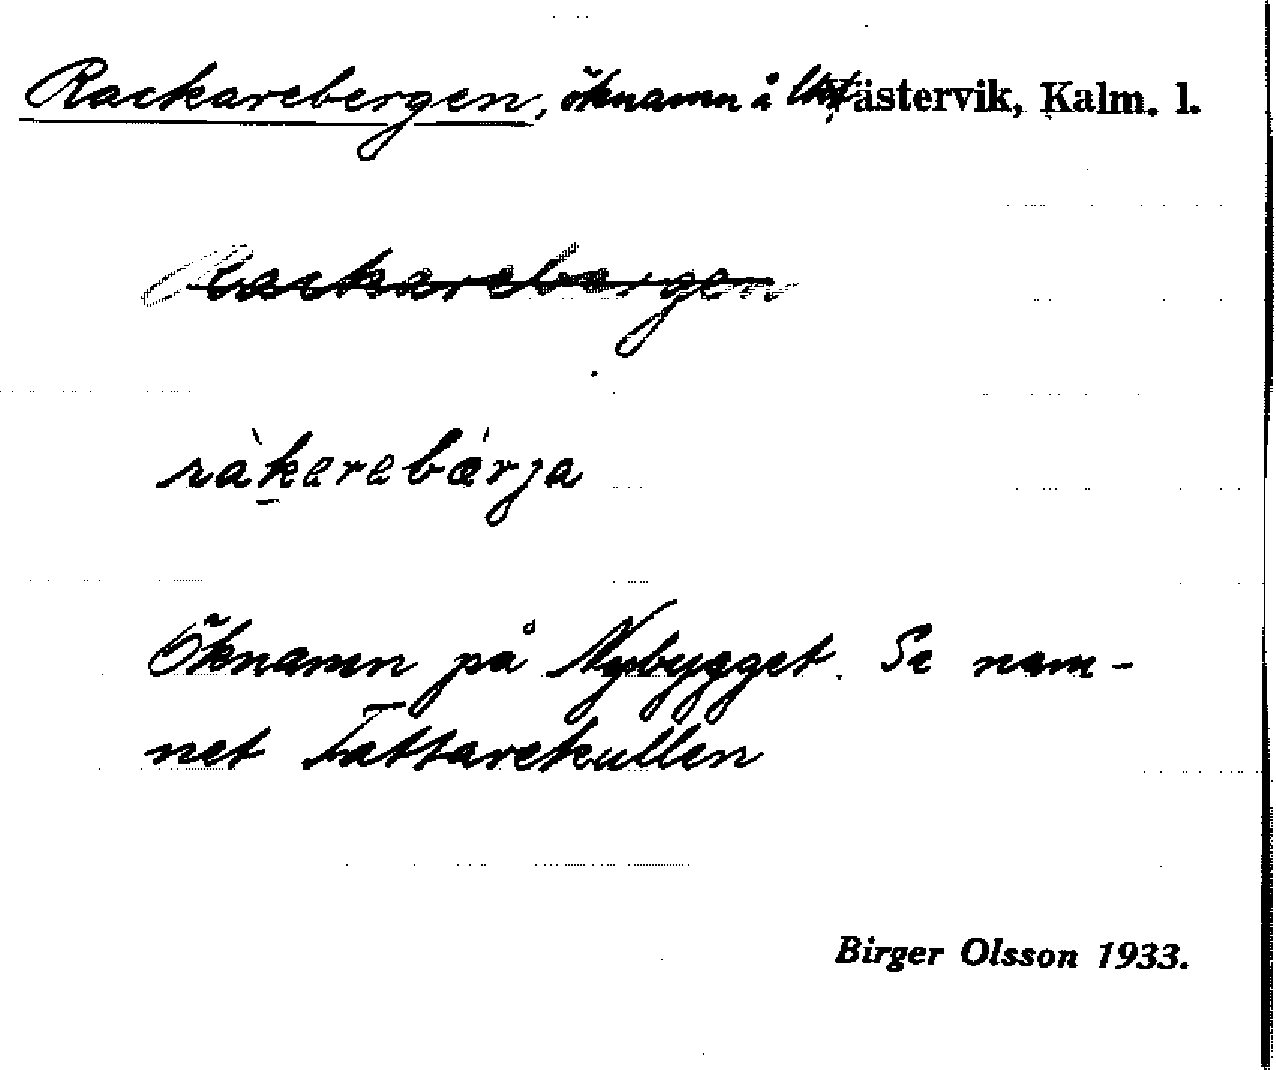 Rackarebergen, öknamn i Västervik, Kalm. l.
Rackarebergen
ràkerebǽrja
Öknamn på Nybygget. Se nam-
net Tattarekullen
Birger Olsson 1933.